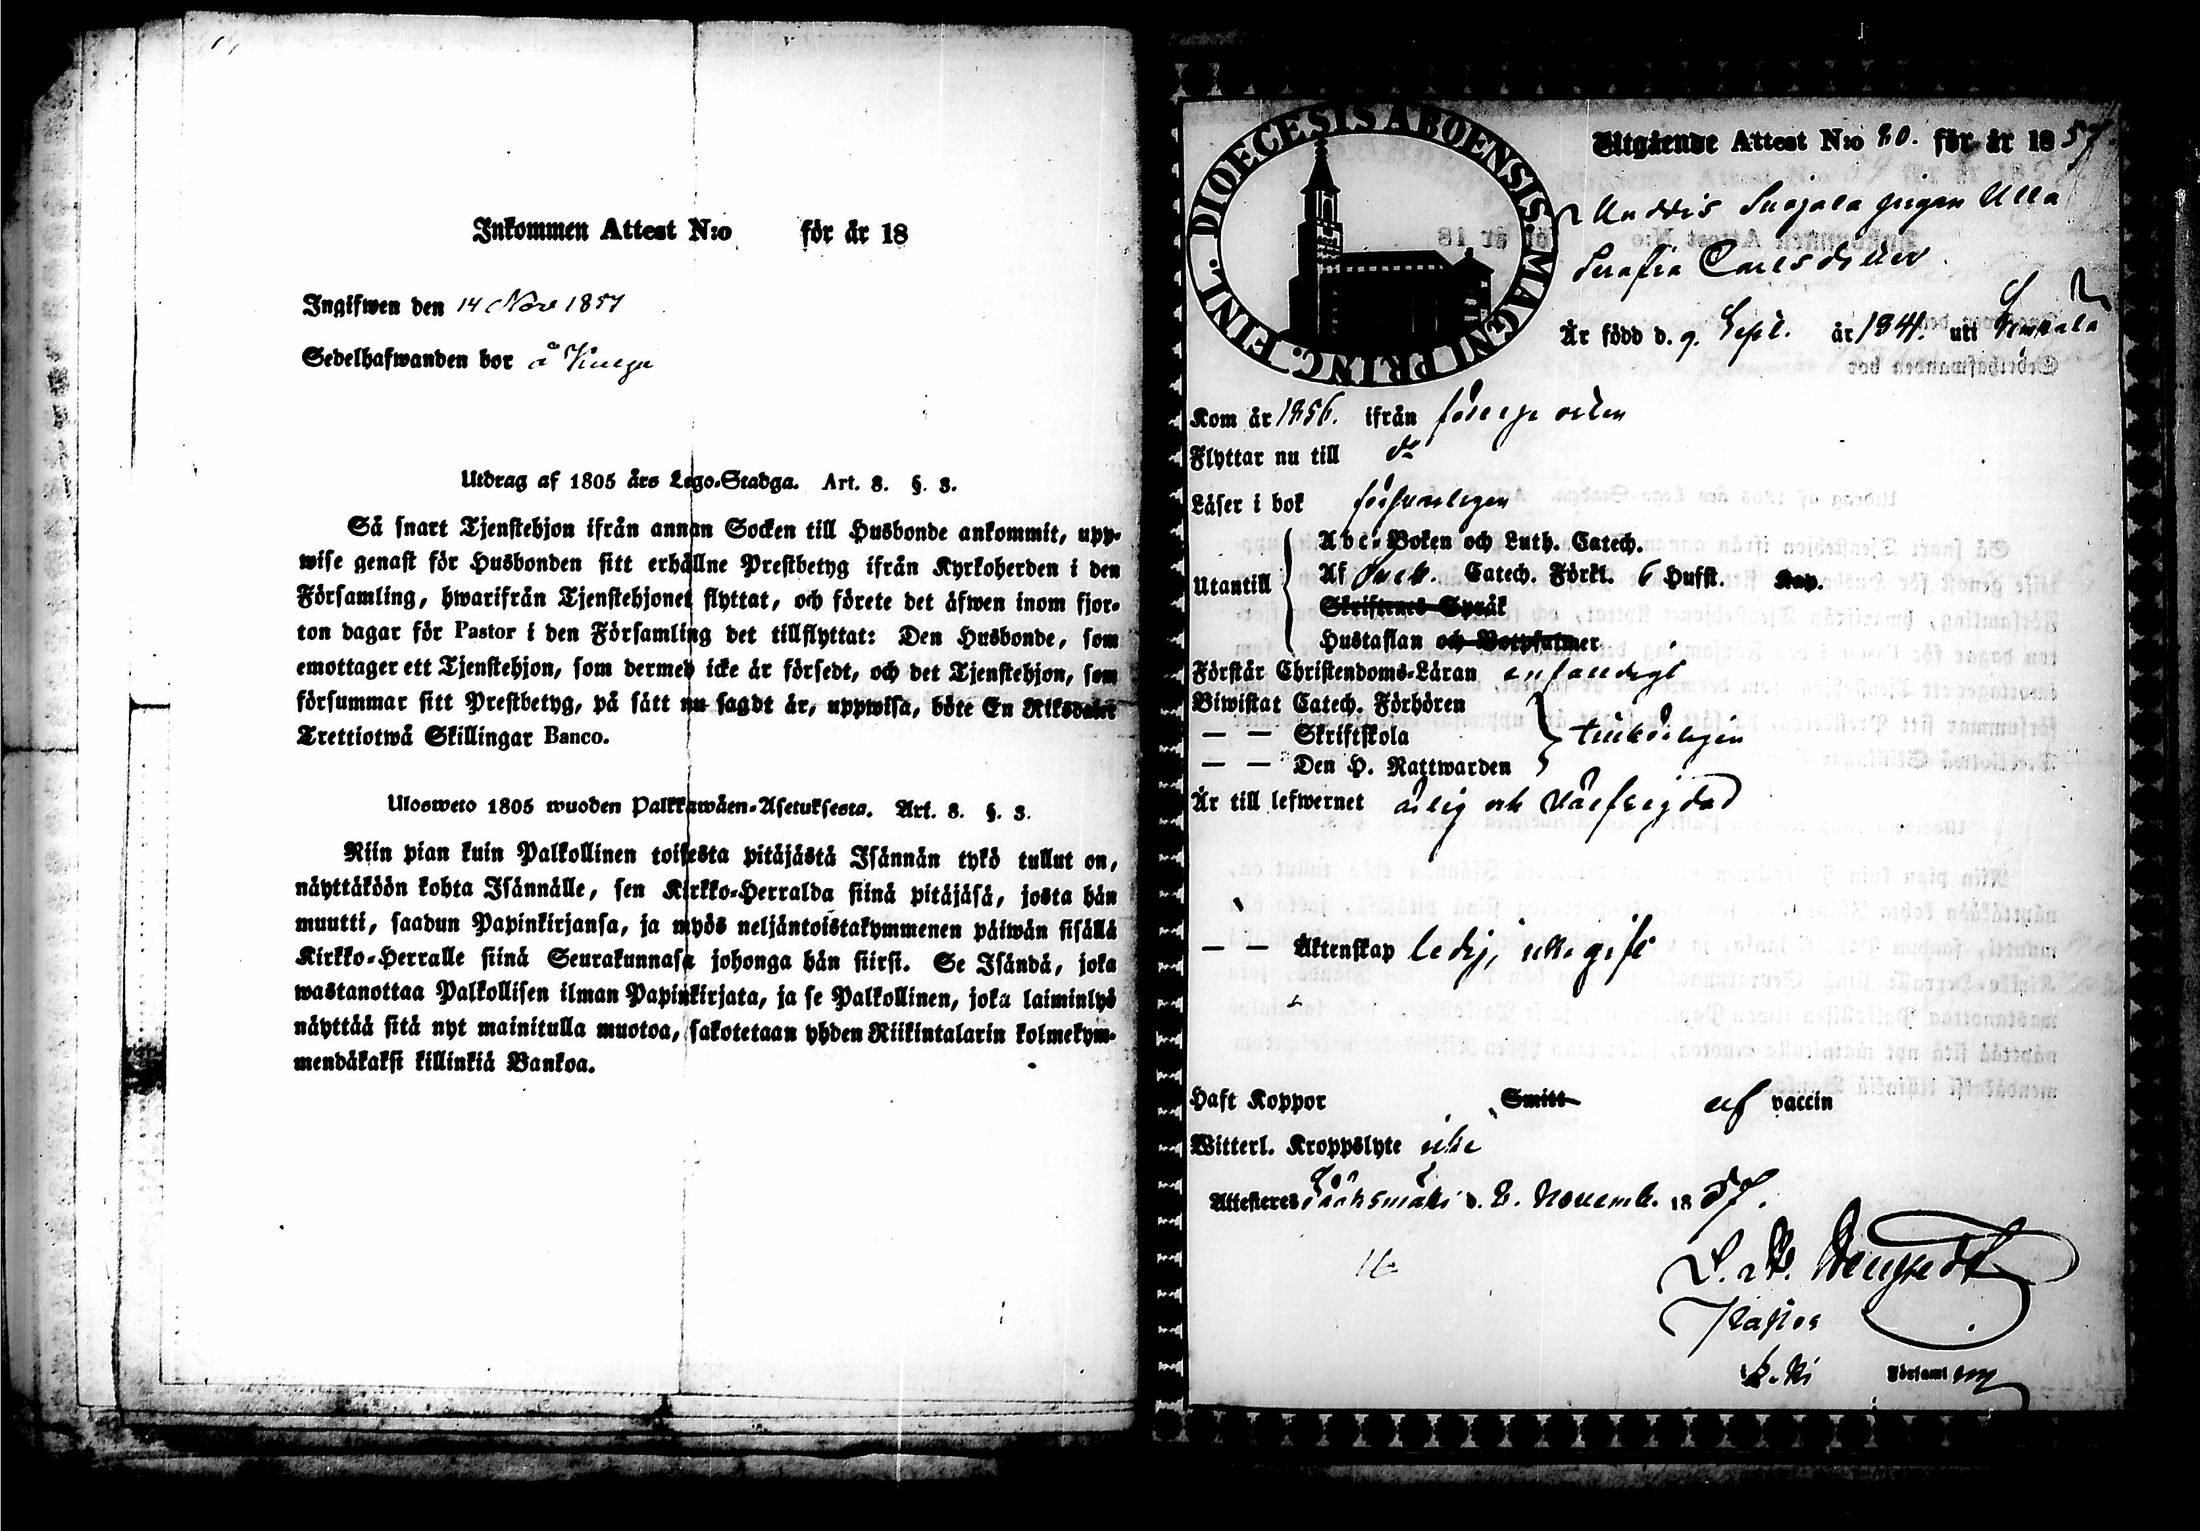 Inkommen Attest N:o för år 18
Ingifwen den 14 Nov 1857
Sedelhafwanden bor å
Utdrag af 1805 års Lego-Stadga. Art. 8. §. 3.
Så snart Tjenstehjon ifrån annan Socken till Husbonde ankommit, upp-
wise genast för Husbonden sitt erhållne Prestbetyg ifrån Kyrkoherden i den
Församling, hwarifrån Tjenstehjonet flyttat, och förete det äfwen inom fjor-
ton dagar för Pastor i den Församling det tillflyttat: Den Husbonde, som
emottager ett Tjenstehjon, som dermed icke är försedt, och det Tjenstehjon, som
försummar sitt Prestbetyg, på sätt nu sagdt är, uppwisa, böte En Riksdaler
Trettiotwå Skillingar Banco.
Ulosweto 1805 wuoden Palkkawäen-Asetuksesta. Art. 8. §. 3.
Niin pian kuin Palkollinen toisesta pitäjästä Isännän tykö tullut on,
näyttäköön kohta Isännälle, sen Kirkko-Herralda siinä pitäjäsä, josta hän
muutti, saadun Papinkirjansa, ja myös neljäntoistakymmenen päiwän sisällä
Kirkko-Herralle siinä Seurakunnasa johonga hän siirsi. Se Isändä, joka
wastanottaa Palkollisen ilman Papinkirjata, ja se Palkollinen, joka laiminlyö
näyttää sitä nyt mainitulla muotoa, sakotetaan yhden Riikintalarin kolmekym-
mendäkaksi killinkiä Bankoa.
DIOECESIS ABOENSIS. MAGNI PRINC. FINL.
Utgående Attest N:o 80. för år 1857.
pigan Ulla
Serafia Carlsdotter
Är född d. 9 Sept. år 1841. uti
Kom år 1856. ifrån
Flyttar nu till do
Läser i bok försvarligen
Utantill
Abc-Boken och Luth. Catech.
Af Catech. Förkl. 6 Hufst. Kap.
Skriftenes Språk
Hustaflan och Botpsalmer
Förstår Christendoms-Läran enfaldigt
Biwistat Catech. Förhören
— — Skriftskola
tillbörligen
— — Den H. Nattwarden
Är till lefwernet ärlig och
— — Äktenskap ledig, icke gift
Haft Koppor Smitt af vaccin
Witterl. Kroppslyte icke
Attesteres Sääksmäki d. 8. Novemb. 1857.
Pastor
Församl